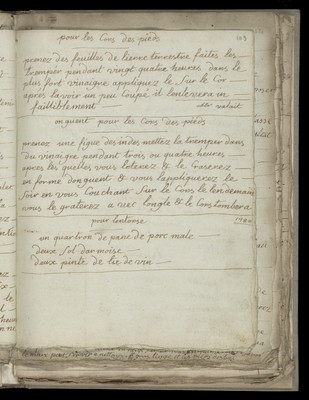 pour les Cors des pieds
123
prenez des feuilles de lierre terrestre faites les
tramper pendant vingt quatre heures dans le
plus fort vinaigre appliquez le Sur le Cor
apres lavoir un peu Coupé il lenlevera in
failliblement
onguent pour les Cors des pieds
prenez une figue des indes mettez la tremper dans
du vinaigre pendant trois ou quatre heures
apres les quelles vous loterez & le raserez
en forme donguent & vous lappliquerez le
Soir en vous Couchant Sur le Cors le lendemain
vous le graterez avec longle & le Cors tombera
pour lentorse
un quartron de pane de porc male
deux Sol darmoise
deux pinte de lie de vin